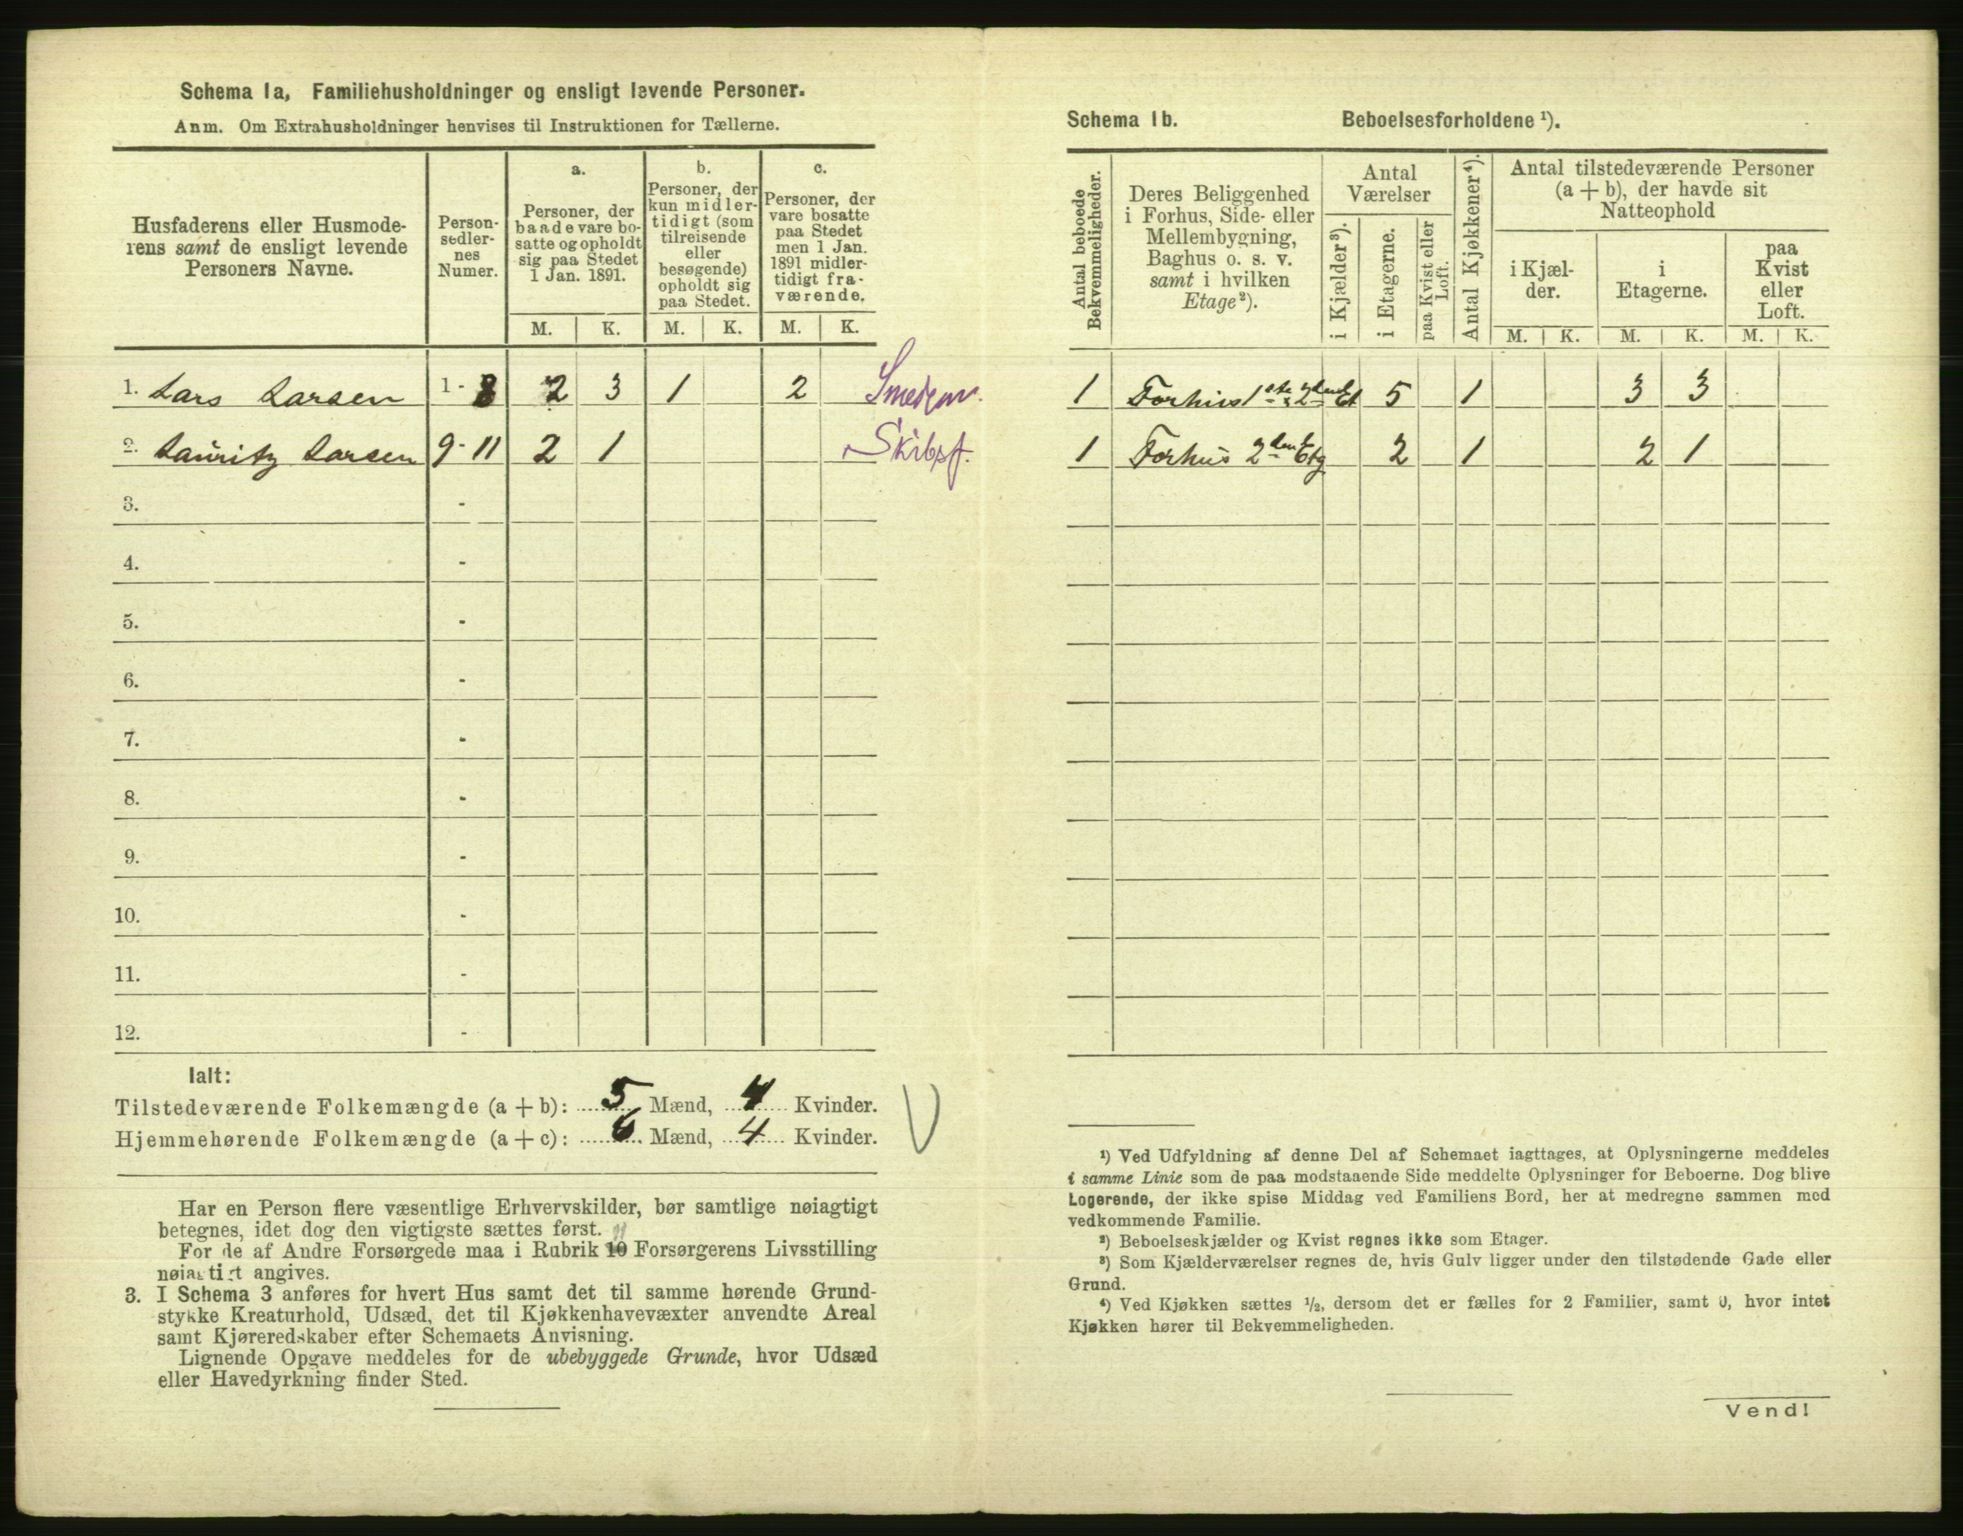 Schema 1a, Familiehusholdninger og ensligt levende Personer.
Anm. Om Extrahusholdninger henvises til Instruktionen for Tællerne.
Husfaderens eller Husmode-
rens samt de ensligt levende
Personers Navne.
Person-
sedler-
nes
Numer.
a.
Personer, der
baade vare bo-
satte og opholdt
sig paa Stedet
1 Jan. 1891.
b.
Personer, der
kun midler-
tidigt (som
tilreisende
eller
besøgende)
opholdt sig
paa Stedet.
c.
Personer, der
vare bosatte
paa Stedet
men 1 Jan.
1891 midler-
tidigt fra-
værende.
M. K. M. K. M. K.
1. Lars Larsen 1 - 8 2 3 1 2
2. Lauritz Larsen 9 - 11 2 1 Skibsf.
3. -
4. -
5. -
6. -
7. -
8. -
9. -
10. -
11. -
12. -
Ialt:
Tilstedeværende Folkemængde (a + b): 5 Mænd, 4 Kvinder.
Hjemmehørende Folkemængde (a + c): 6 Mænd, 4 Kvinder.
Har en Person flere væsentlige Erhvervskilder, bør samtlige nøiagtigt
betegnes, idet dog den vigtigste sættes først.
For de af Andre Forsørgede maa i Rubrik 10 Forsørgerens Livsstilling
nøiagtigt angives.
3. I Schema 3 anføres for hvert Hus samt det til samme hørende Grund-
stykke Kreaturhold, Udsæd, det til Kjøkkenhavevæxter anvendte Areal
samt Kjøreredskaber efter Schemaets Anvisning.
Lignende Opgave meddeles for de ubebyggede Grunde, hvor Udsæd
eller Havedyrkning finder Sted.
Schema 1b. Beboelsesforholdene ¹).
Antal beboede
Bekvemmeligheder.
Deres Beliggenhed
i Forhus, Side- eller
Mellembygning,
Baghus o. s. v.
samt i hvilken
Etage ²).
Antal
Værelser
i Kjælder ³).
i Etagerne.
paa Kvist eller
Loft.
Antal Kjøkkener ⁴).
Antal tilstedeværende Personer
(a + b), der havde sit
Natteophold
i Kjæl-
der.
i
Etagerne.
paa
Kvist
eller
Loft.
M. K. M. K. M. K.
1 Forhus 1ste & 2den Et 5 1 3 3
1 Forhus 2den Etg 2 1 2 1
¹) Ved Udfyldning af denne Del af Schemaet iagttages, at Oplysningerne meddeles
i samme Linie som de paa modstaaende Side meddelte Oplysninger for Beboerne. Dog blive
Logerende, der ikke spise Middag ved Familiens Bord, her at medregne sammen med
vedkommende Familie.
²) Beboelseskjælder og Kvist regnes ikke som Etager.
³) Som Kjælderværelser regnes de, hvis Gulv ligger under den tilstødende Gade eller
Grund.
⁴) Ved Kjøkken sættes ½, dersom det er fælles for 2 Familier, samt 0, hvor intet
Kjøkken hører til Bekvemmeligheden.
Vend!